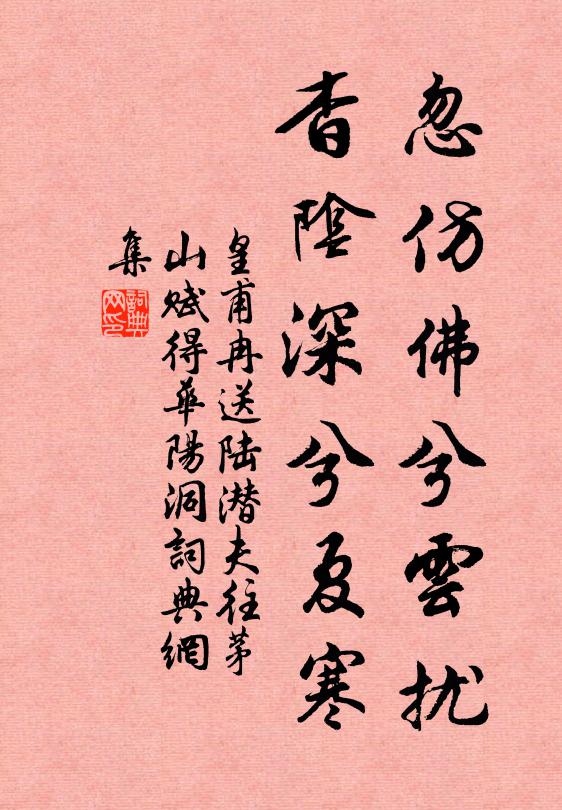 忽仿佛兮雲扰
杳陰深兮夏寒
皇甫冉送陆潜夫往茅
山赋得華陽洞詞典網
集
詞典
网印